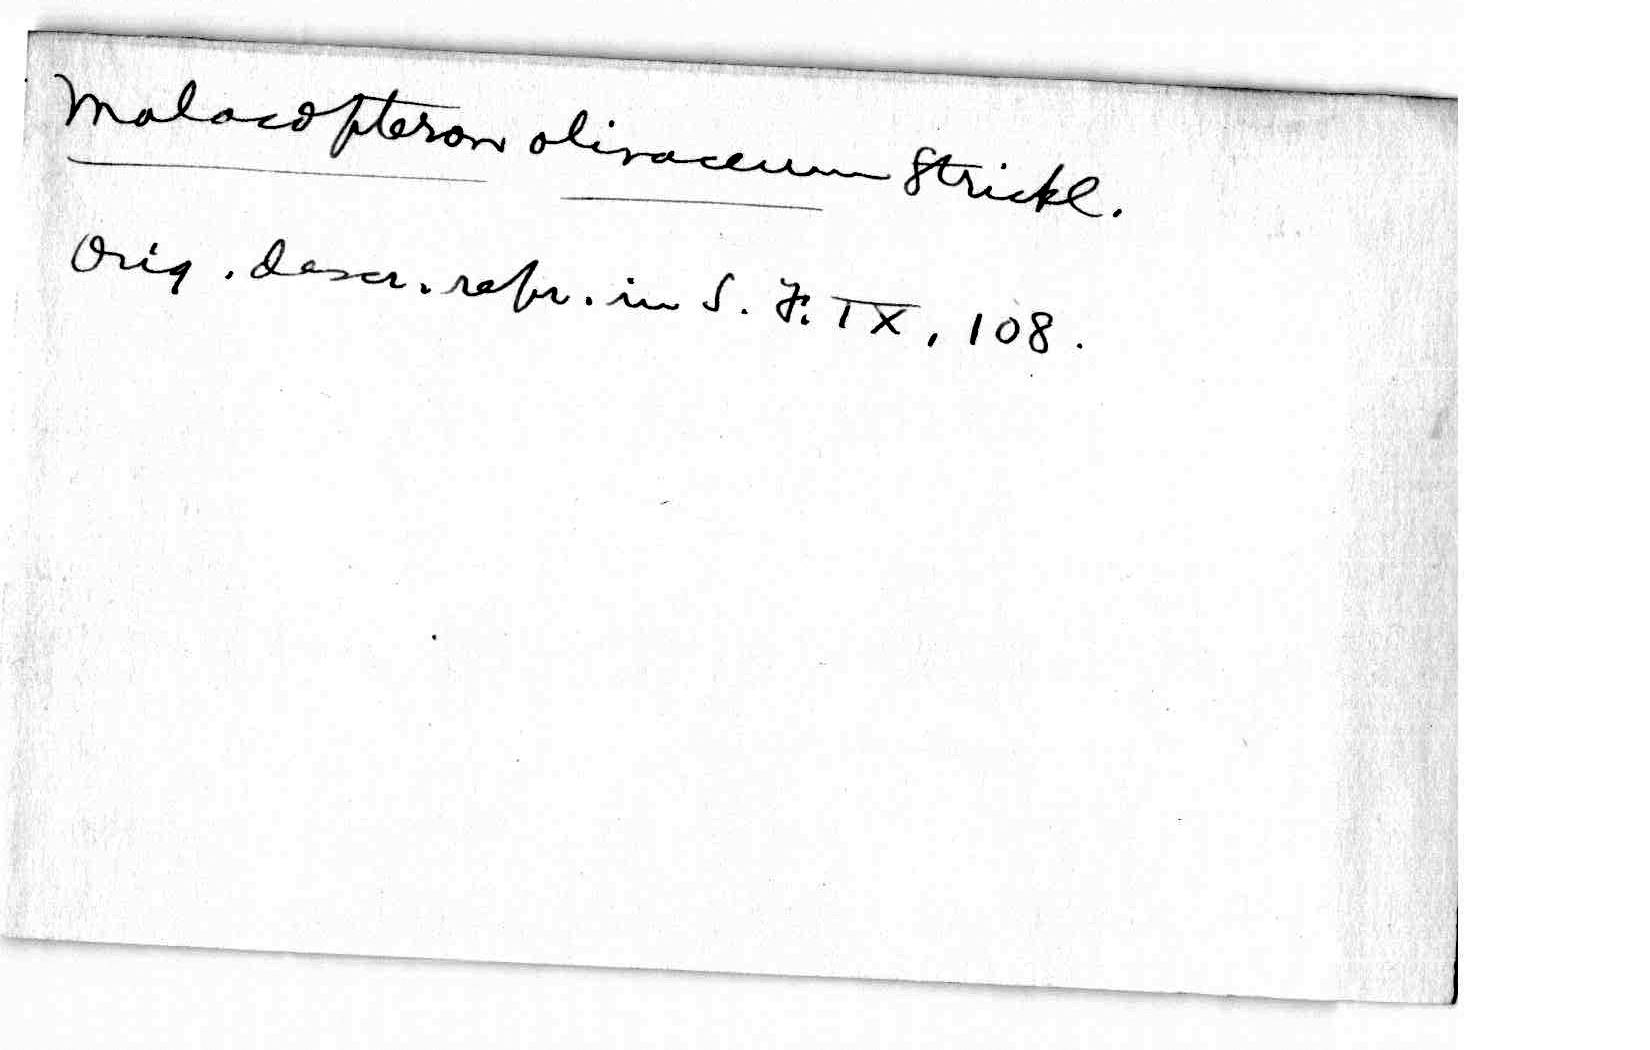 Malacopteron olivaceum Strickl.
Orig. descr. repr. in S. F. IX, 108.